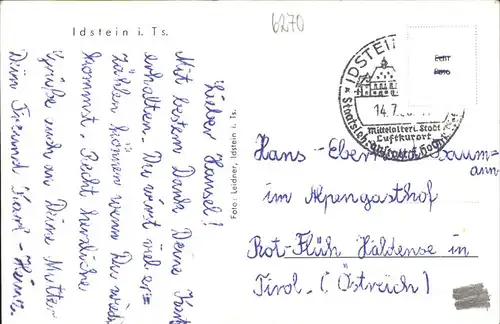 Idstein i. Ts.
6270
Lieber Hansel!
Mit bestem Dank Deine Karte
erhalten. Du wirst viel er=
zählen können wenn Du wieder
kommst. Recht herzliche
Grüße auch an Deine Mutter
Dein Freund Karl-Heinz.
Foto: Leidner, Idstein i. Ts.
Echt
Foto
IDSTEIN
14.7.
Mittelalterl. Stadt
Luftkurort
Hans-Eberhard Baum=
ann
im Alpengasthof
Rot-Flüh Haldensee in
Tirol. (Östreich)